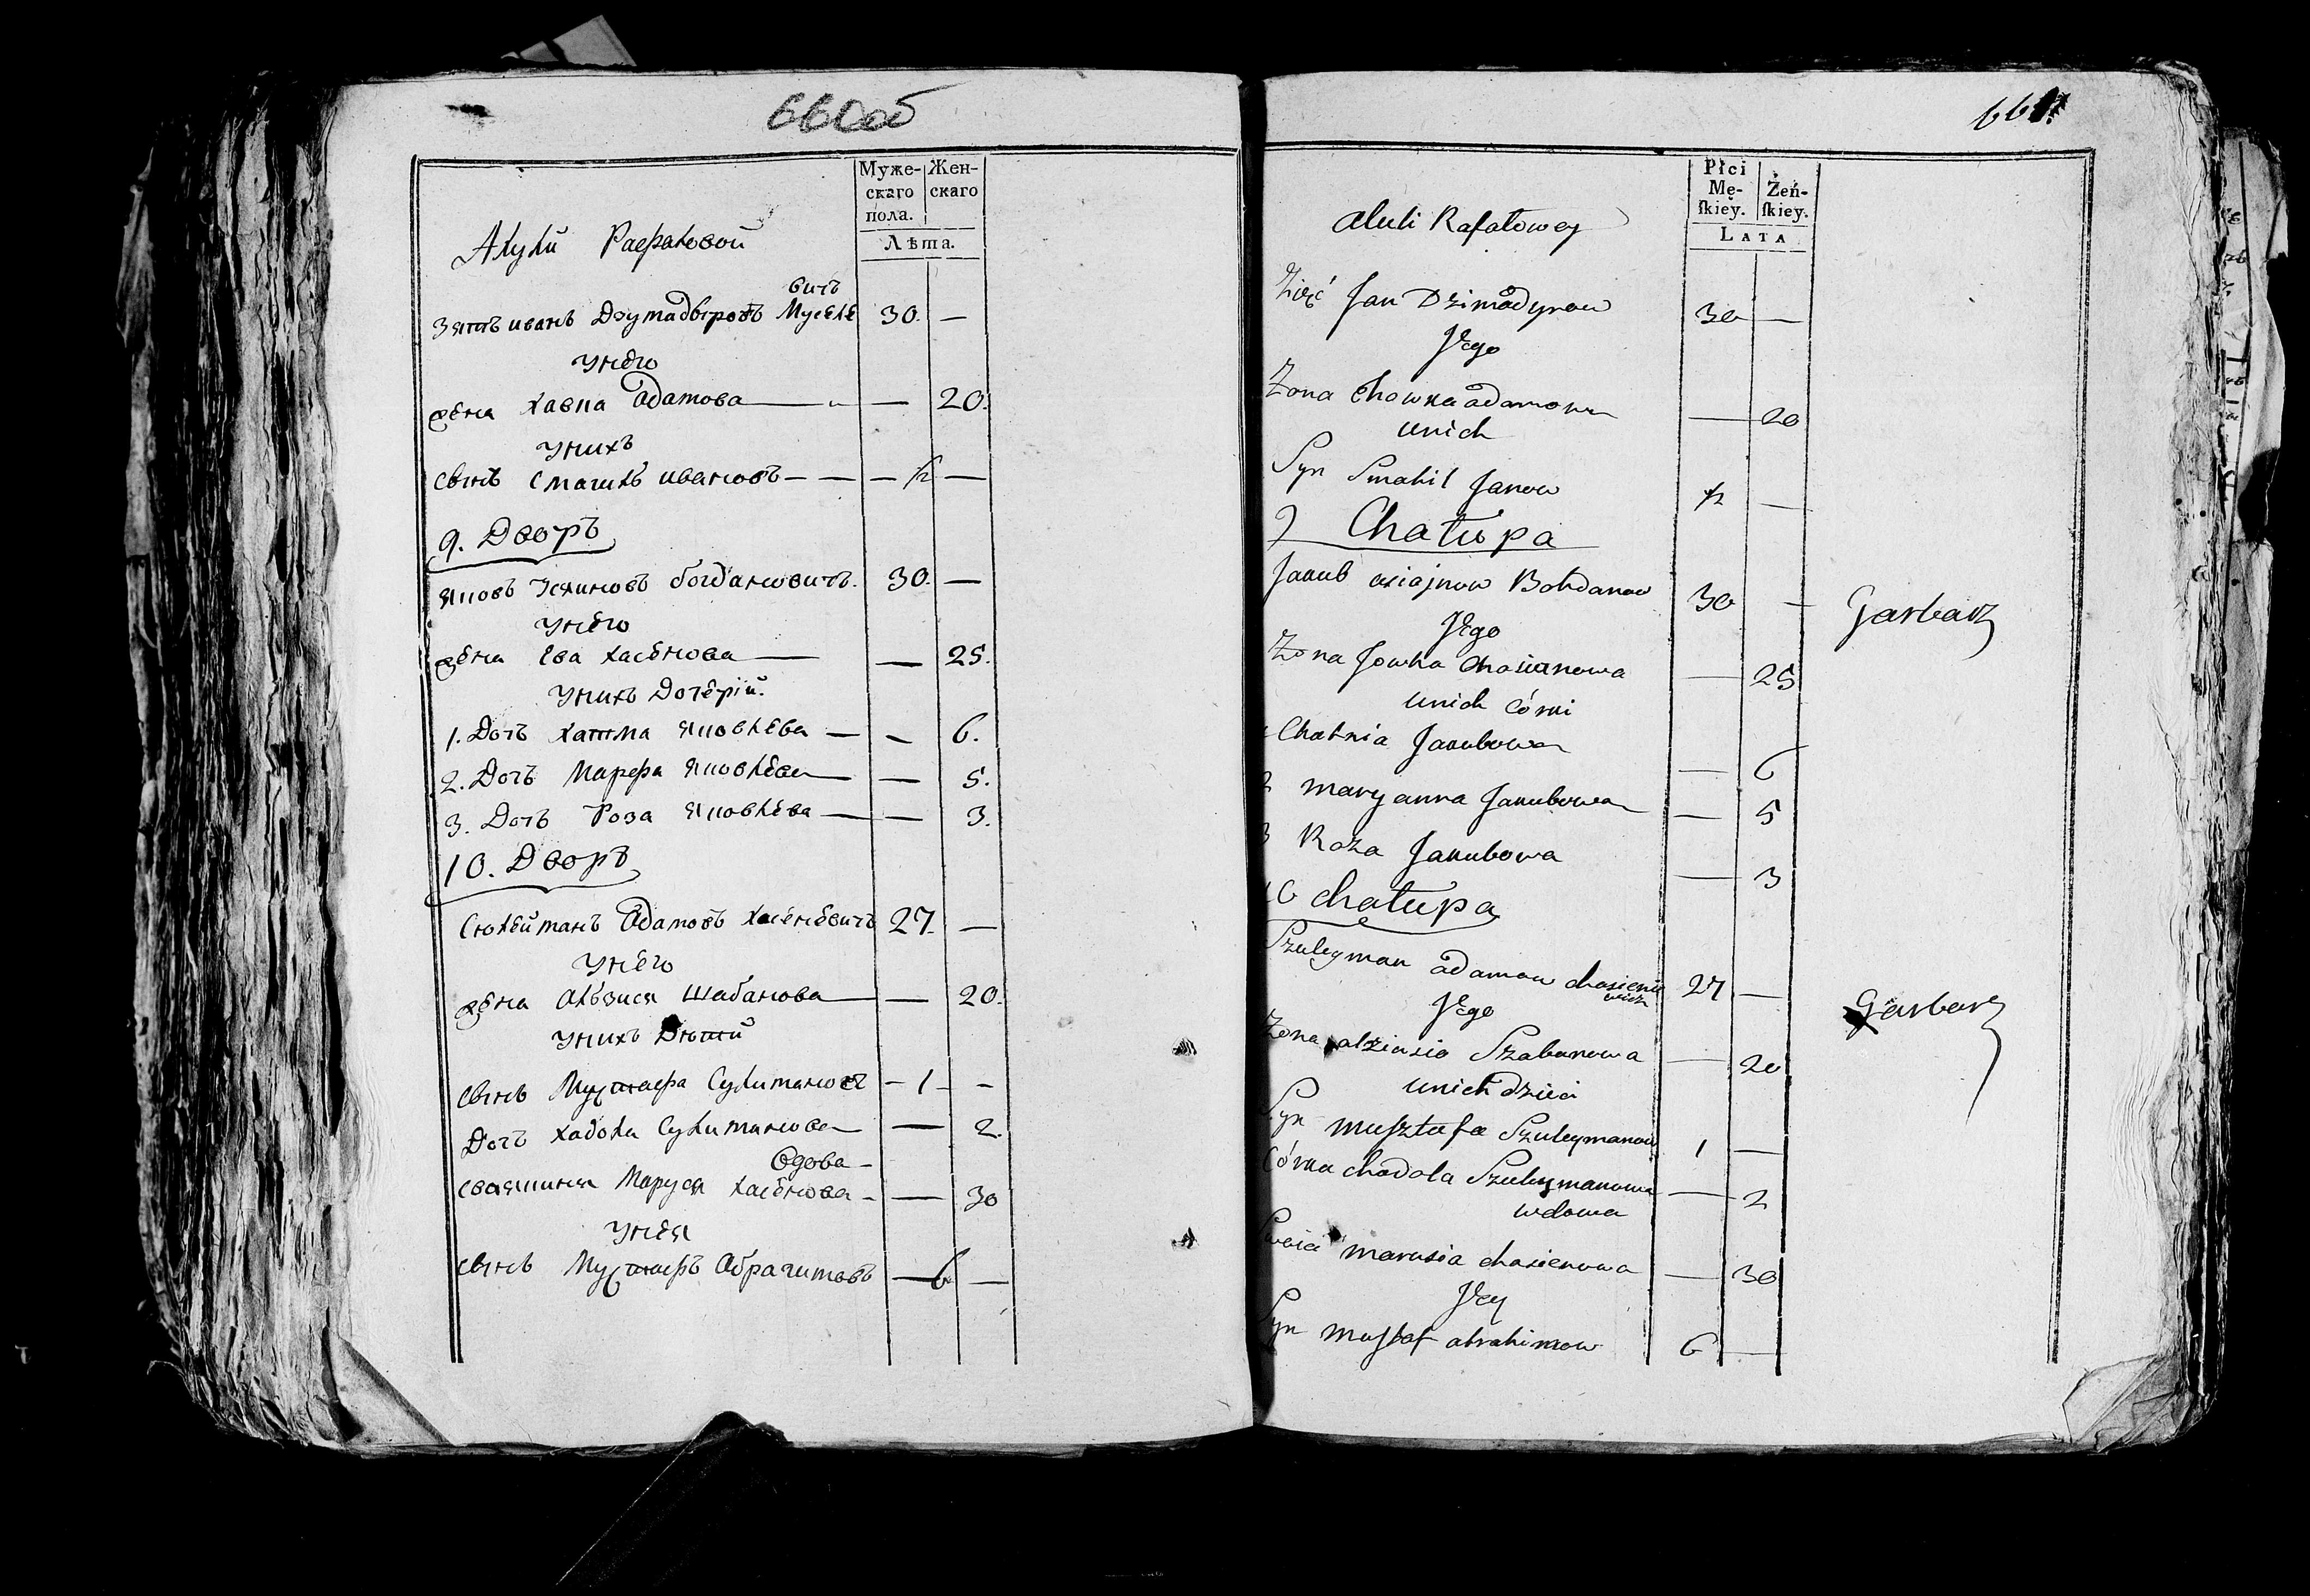 660об
Муже-
скаго
пола.
Жен-
скаго
Лѣта.
Алули Рафаловой
вичъ
Зять иванъ Джумадыровъ Муселе 30. —
Унего
жена Хавка Адамова — — 20.
Унихъ
сынъ Смагилъ ивановъ — — — ½ —
9. Дворъ
Яковъ Усяиновъ богдановичъ. 30. —
Унего
жена Ева Хасенова — — 25.
Унихъ Дочерій.
1. Дочъ Хатма Яковлева — — 6.
2. Дочъ Марефа Яковлева — — 5.
3. Дочъ Роза Яковлева — — 3.
10. Дворъ
Сюлейманъ Адамовъ Хасеневичъ 27. —
Унего
жена Алѣзися Шабанова — — 20.
Унихъ Дѣтей
сынъ Мустафа Сулимановъ — 1 — —
Дочъ Хадола Сулиманова — — 2.
Вдова —
сваячиня Маруся Хасенова — — 30
Унея
сынъ Мустафъ Абрагимовъ — 6 —
661
Płci
Mę-
ſkiey.
Żeń-
ſkiey.
LATA
Aluli Rafałowey
Zięć Jan Dzimadyrow 30 —
Jego
Żona Chawka Adamowa — 20
unich
Syn Smahil Janow ½ —
9 Chałupa
Jakub Usiajnow Bohdanow 30 — Garbarz
Jego
Żona Jowka Chasianowa — 25
unich Córki
Chatnia Jakubowa — 6
2 Maryanna Jakubowa — 5
3 Roża Jakubowa — 3
10 Chałupa
Szuleyman Adamow Chasienie 27 — Garbarz
wicz
Jego
Żona alziasia Szabanowa — 20
unich dzieci
Syn Musztafa Szuleymanow 1 —
Córka Chadola Szuleymanowa — 2
wdowa
Swaci Marusia Chasienowa — 30
Jey
Syn Mustaf abrahimow 6 —